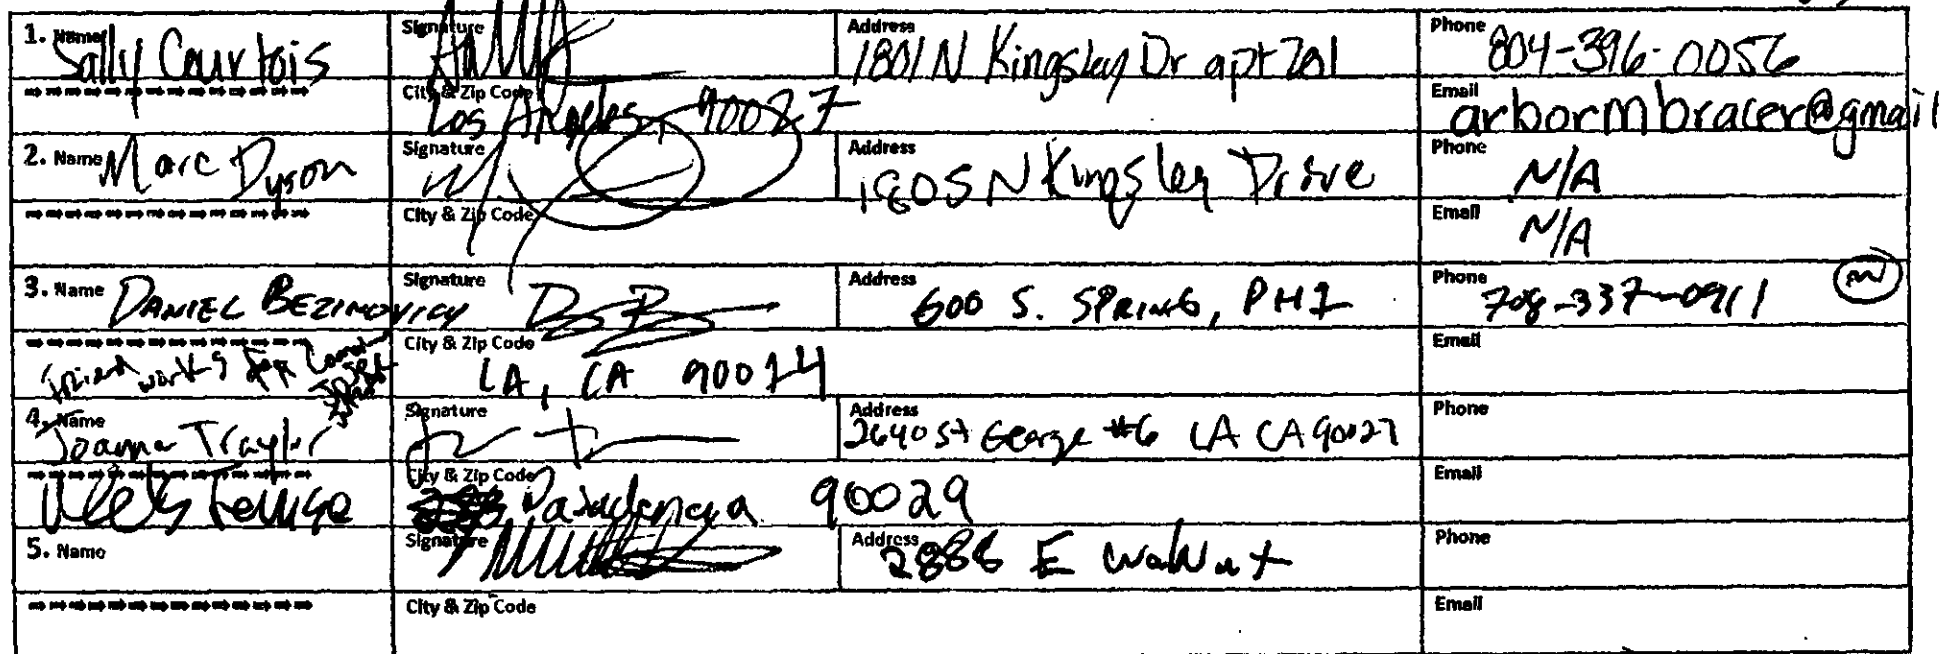 1. Name Sally Courtois Signature Address 1801 N Kingsley Dr apt 201 Phone 804-396-0056
City & Zip Code Los Angeles, 90027 Email arbormbracer@gmail
2. Name Marc Dyson Signature Address 1805 N Kingsley Drive Phone N/A
City & Zip Code Email N/A
3. Name DANIEL BEZINOVICH Signature Address 600 S. SPRING, PH1 Phone 708-337-0911
friend works for City & Zip Code LA, CA 90014 Email
4. Name Joanna Traylor Signature Address 2640 St George #6 LA CA 90027 Phone
City & Zip Code 90029 Email
5. Name Signature Address 2888 E Walnut Phone
City & Zip Code Email